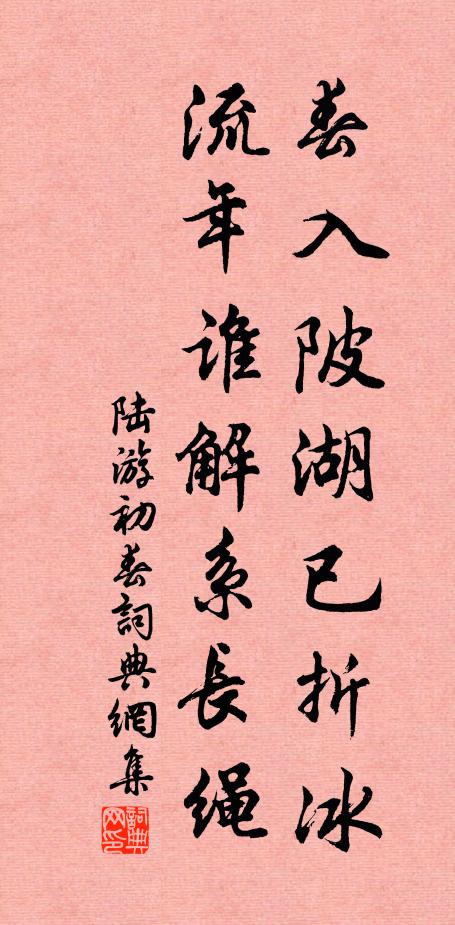 春入陂湖已折冰
流年谁解系長绳
陆游初春詞典網集
詞典网印